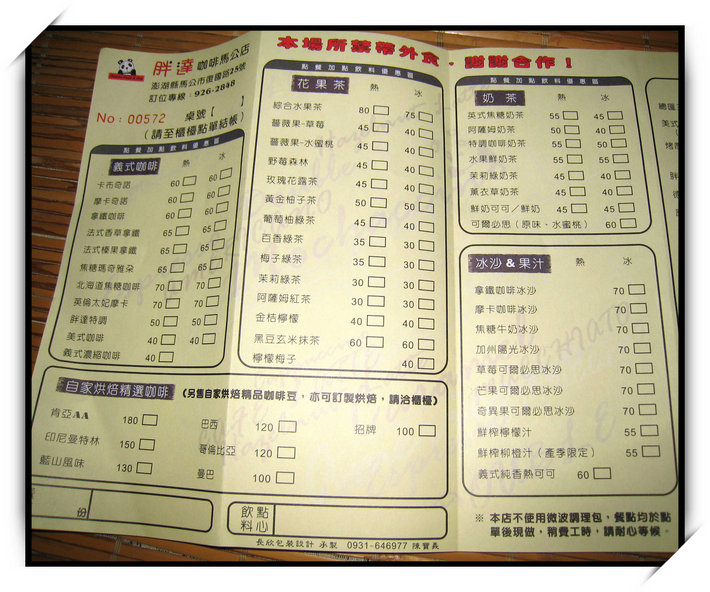 胖達咖啡馬公店
澎湖縣馬公市復國路25號
訂位專線：926-2848
No：00572 桌號【 】
(請至櫃檯點單結帳)
本場所禁帶外食，謝謝合作！
點餐加點飲料優惠區
義式咖啡 熱 冰
卡布奇諾 60 60
摩卡奇諾 60 60
拿鐵咖啡 60 60
法式香草拿鐵 65 65
法式榛果拿鐵 65 65
焦糖瑪奇雅朵 65 65
北海道焦糖咖啡 70 70
英倫太妃摩卡 70 70
胖達特調 50 50
美式咖啡 40 40
義式濃縮咖啡 40
點餐加點飲料優惠區
花果茶 熱 冰
綜合水果茶 80 75
薔薇果-草莓 45 40
薔薇果-水蜜桃 45 40
野莓森林 45 40
玫瑰花露茶 45 40
黃金柚子茶 50 50
葡萄柚綠茶 40 40
百香綠茶 35 30
梅子綠茶 35 30
茉莉綠茶 30 30
阿薩姆紅茶 30 30
金桔檸檬 40 40
黑豆玄米抹茶 60 60
檸檬梅子 40
點餐加點飲料優惠區
奶茶 熱 冰
英式焦糖奶茶 55 45
阿薩姆奶茶 50 45
特調咖啡奶茶 55 50
水果鮮奶茶 55 55
茉莉綠奶茶 50 45
薰衣草奶茶 50 45
鮮奶可可/鮮奶 45 45
可爾必思（原味、水蜜桃） 60
冰沙&果汁 熱 冰
拿鐵咖啡冰沙 70
摩卡咖啡冰沙 70
焦糖牛奶冰沙 70
加州陽光冰沙 70
草莓可爾必思冰沙 70
芒果可爾必思冰沙 70
奇異果可爾必思冰沙 70
鮮榨檸檬汁 55
鮮榨柳橙汁（產季限定） 55
義式純香熱可可 60
自家烘焙精選咖啡 (另售自家烘焙精品咖啡豆，亦可訂製烘焙，請洽櫃檯)
肯亞AA 180 巴西 120 招牌 100
印尼曼特林 150 哥倫比亞 120
藍山風味 130 曼巴 100
份
飲料 點心
※ 本店不使用微波調理包，餐點均於點
單後現做，稍費工時，請耐心等候。
長欣包裝設計 承製 0931-646977 陳寶義
總匯